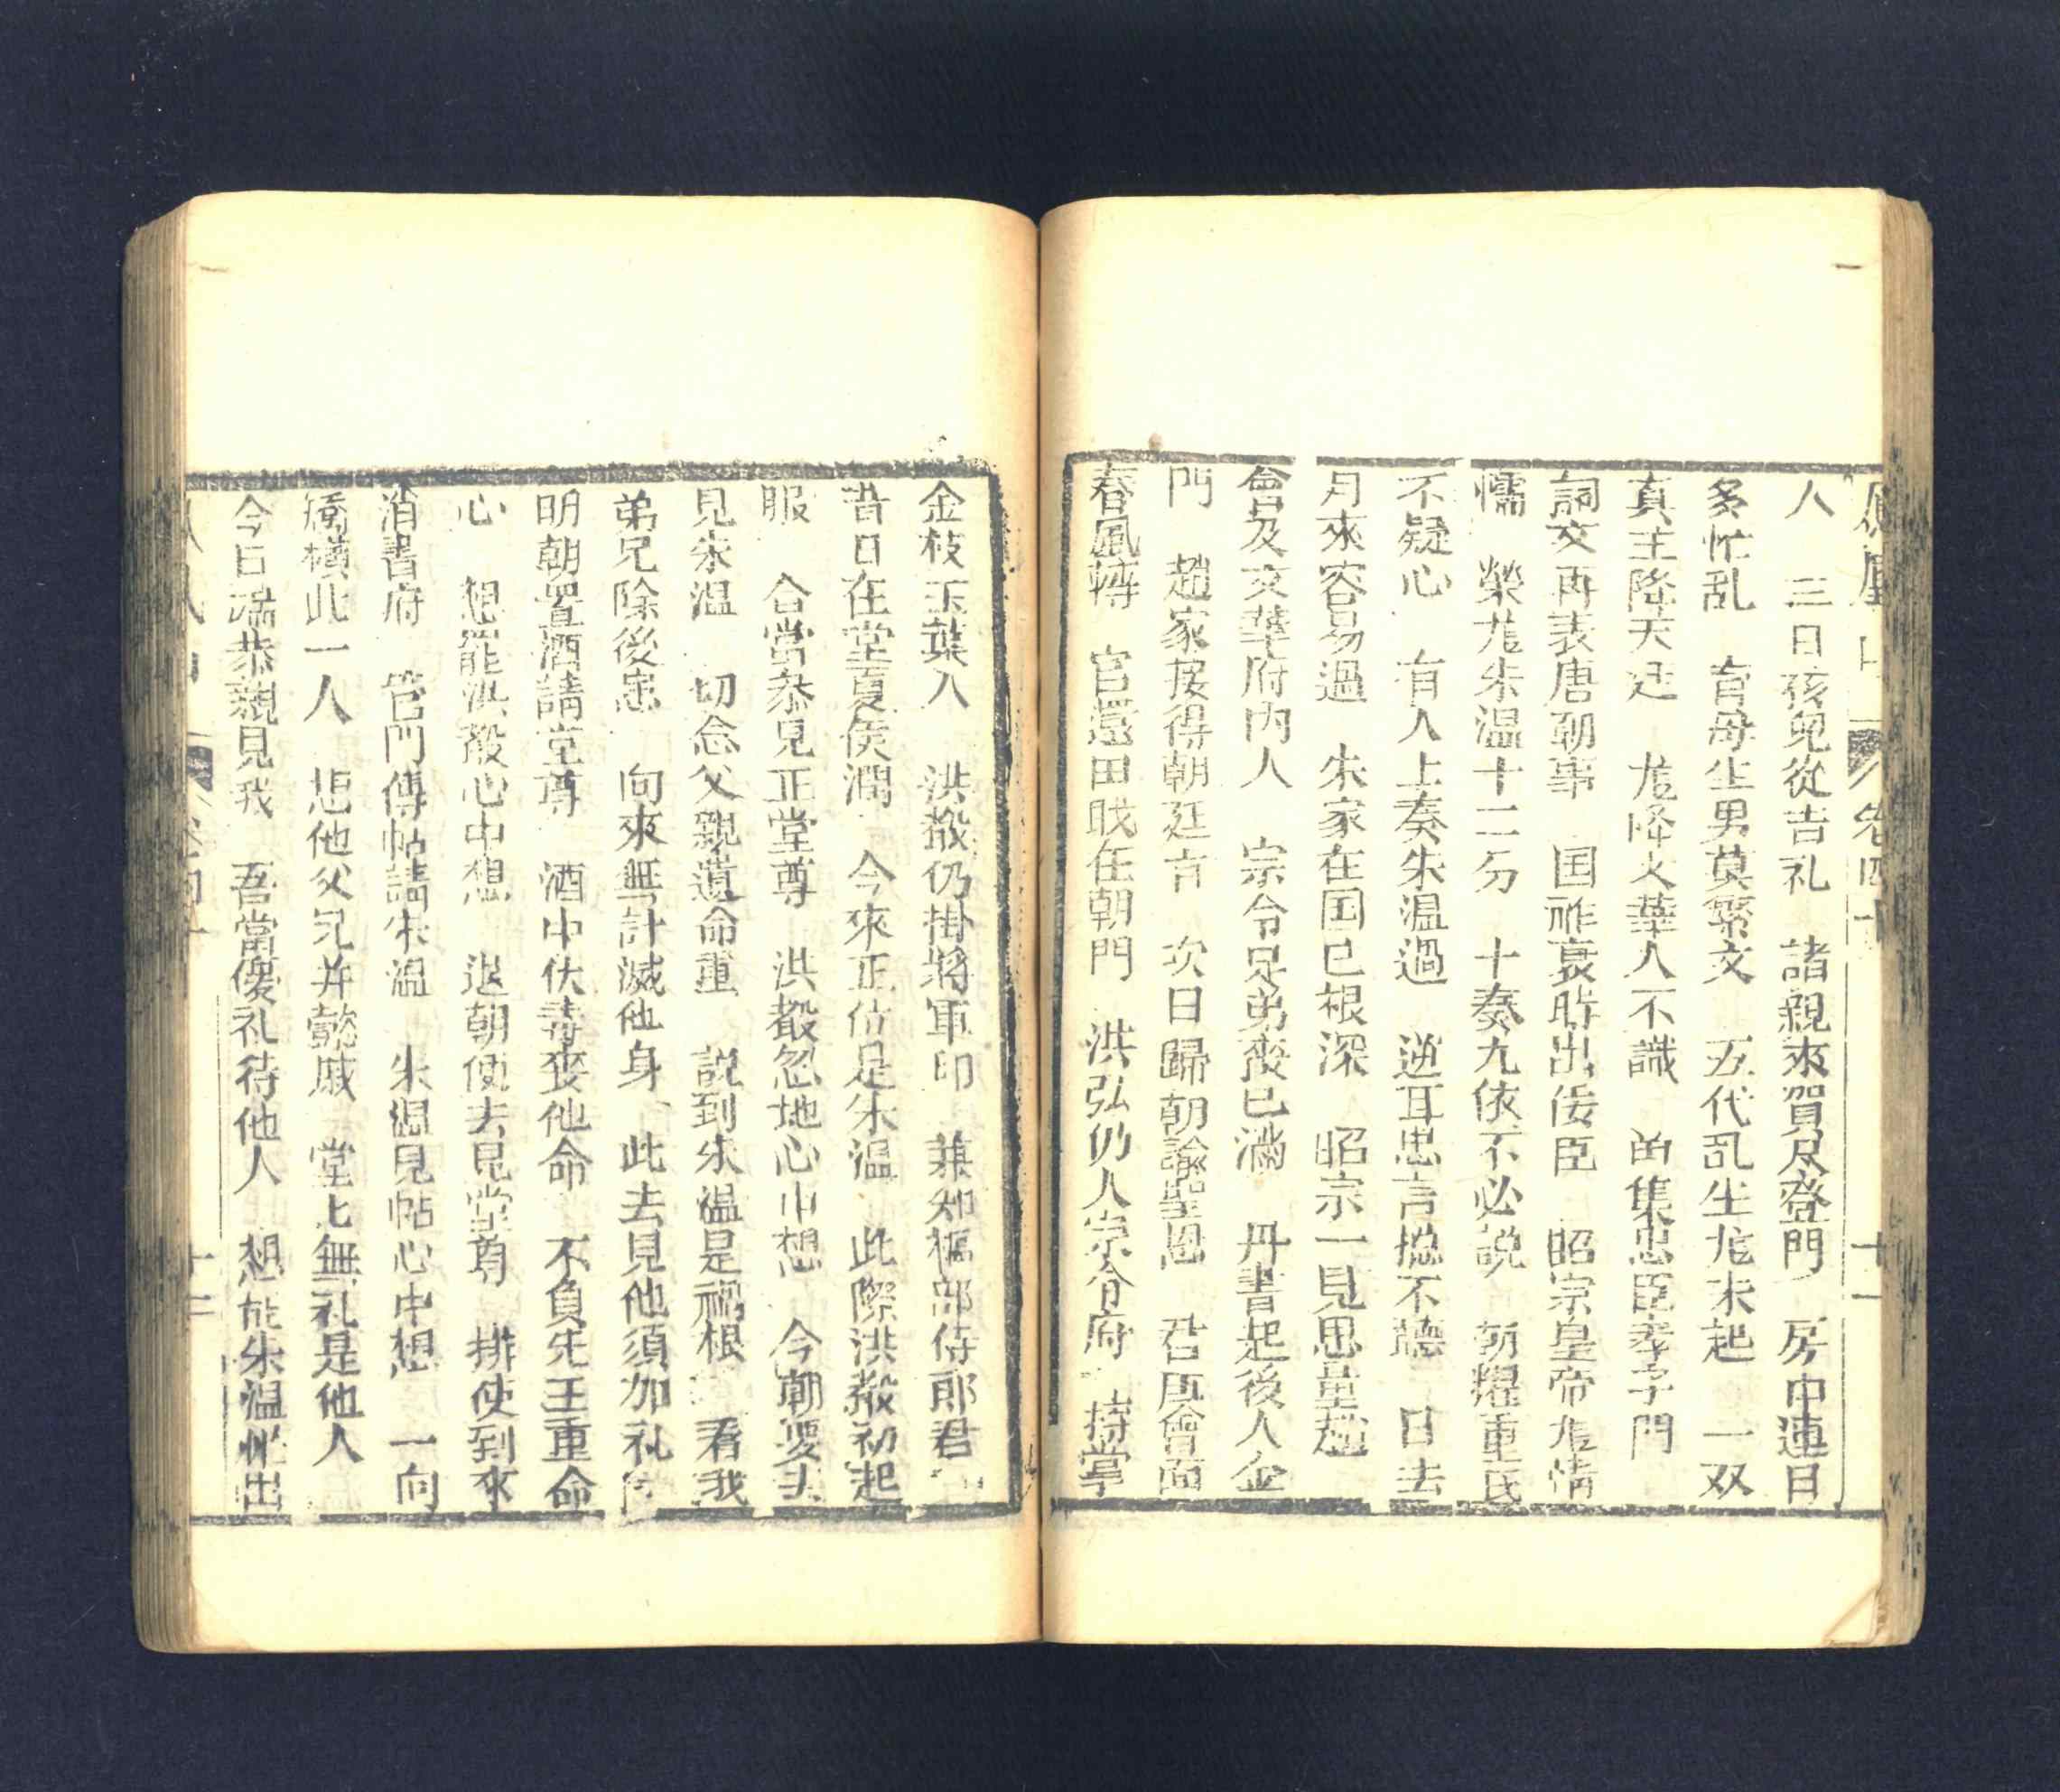 卷四十 十一
人 三日孩兒從吉礼 諸親來賀及登門 房中連日
多忙乱 育母生男莫繁文 五代乱生龙未起 一双
真主降天廷 龙降火華人不識 由集忠臣孝子門
詞文再表唐朝事 囯祚衰時出佞臣 昭宗皇帝龙情
懦 榮龙朱温十二分 十奏九依不必説 朝耀重臣
不疑心 有人上奏朱温過 逆耳忠言捴不聽 日去
月來容易過 朱家在囯已根深 昭宗一見思量趙
會及文華府内人 宗令足弟喪已滿 丹書起後人金
門 趙家接得朝廷言 次日歸朝謝聖恩 君臣會面
春風轉 官還田戝任朝門 洪弘仍人宗令府 持掌
金枝玉葉人 洪殷仍掛將軍印 兼知樞部侍郎君
昔日在堂夏侯潤 今來正位是朱温 此際洪殷初起
服 合當叅見正堂尊 洪殷忽地心中想 今朝要去
見朱温 切念父親遺命重 説到朱温是禍根 看我
弟兄除後患 向來無計滅他身 此去見他須加礼
明朝置酒請堂尊 酒中伏毒喪他命 不負先王重命
心 想罷洪殷心中想 退朝便去見堂尊 排使到來
消書府 管門傳帖請朱温 朱温見帖心中想 一向
驕横此一人 想他父兄并懿戚 堂上無礼是他人
今日端恭親見我 吾當優礼待他人 想罷朱温忙出
十二